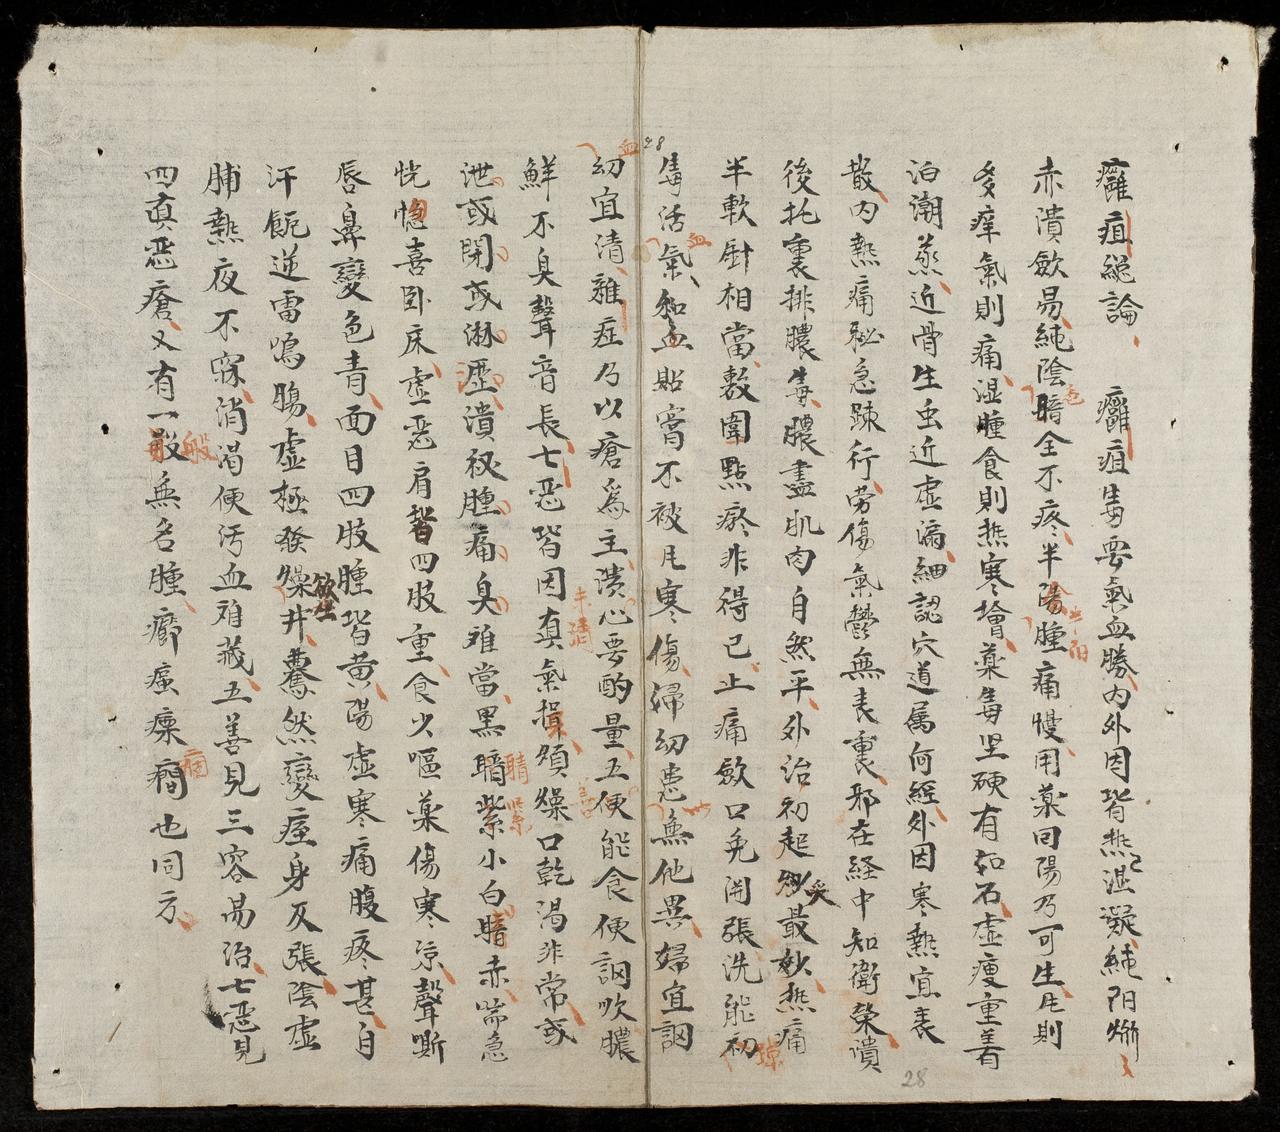 癰疽総論 癰疽毒要氣血勝內外因皆热濕凝純阳焮
赤潰歛易純陰暗全不疼半陽腫痛慢用藥回陽乃可生凡則
多痒氣則痛湿腫食則热寒增藥毒坚硬有如石虛痩重着
泊潮蒸近骨生虫近虛漏細認穴道属何經外因寒熱宜表
散內熱痛秘急踈行劳傷氣鬱無表裏邪在経中知衛榮潰
後托裏排膿毒膿盡肌肉自然平外治初起灸最妙热痛
半軟 相當敷圍點瘀非得已止痛歛口免開張洗能初
毒活氣血和血貼膏不被凡寒傷婦幼患無他異婦宜調血
幼宜清雜症乃以瘡爲主潰心要酌量五便能食便調吹膿
鮮不臭聲音長七惡皆因真氣損煩燥口乾渴非常或
泄或閉或淋瀝潰後腫痛臭难當黑睛紫小白睛赤喘急
恍惚喜卧床虛惡肩背四肢重食少嘔藥傷寒凉聲嘶
唇鼻變色青面目四肢腫皆黄陽虛寒痛腹疼甚自
汗呃逆雷鳴腸虛極發燥欲坐井驀然變痙身反張陰虛
脯熱夜不寐消渴便污血难藏五善見三容昜治七惡見
四真惡瘡又有一般無名腫癤 瘭癎也同方
28
28